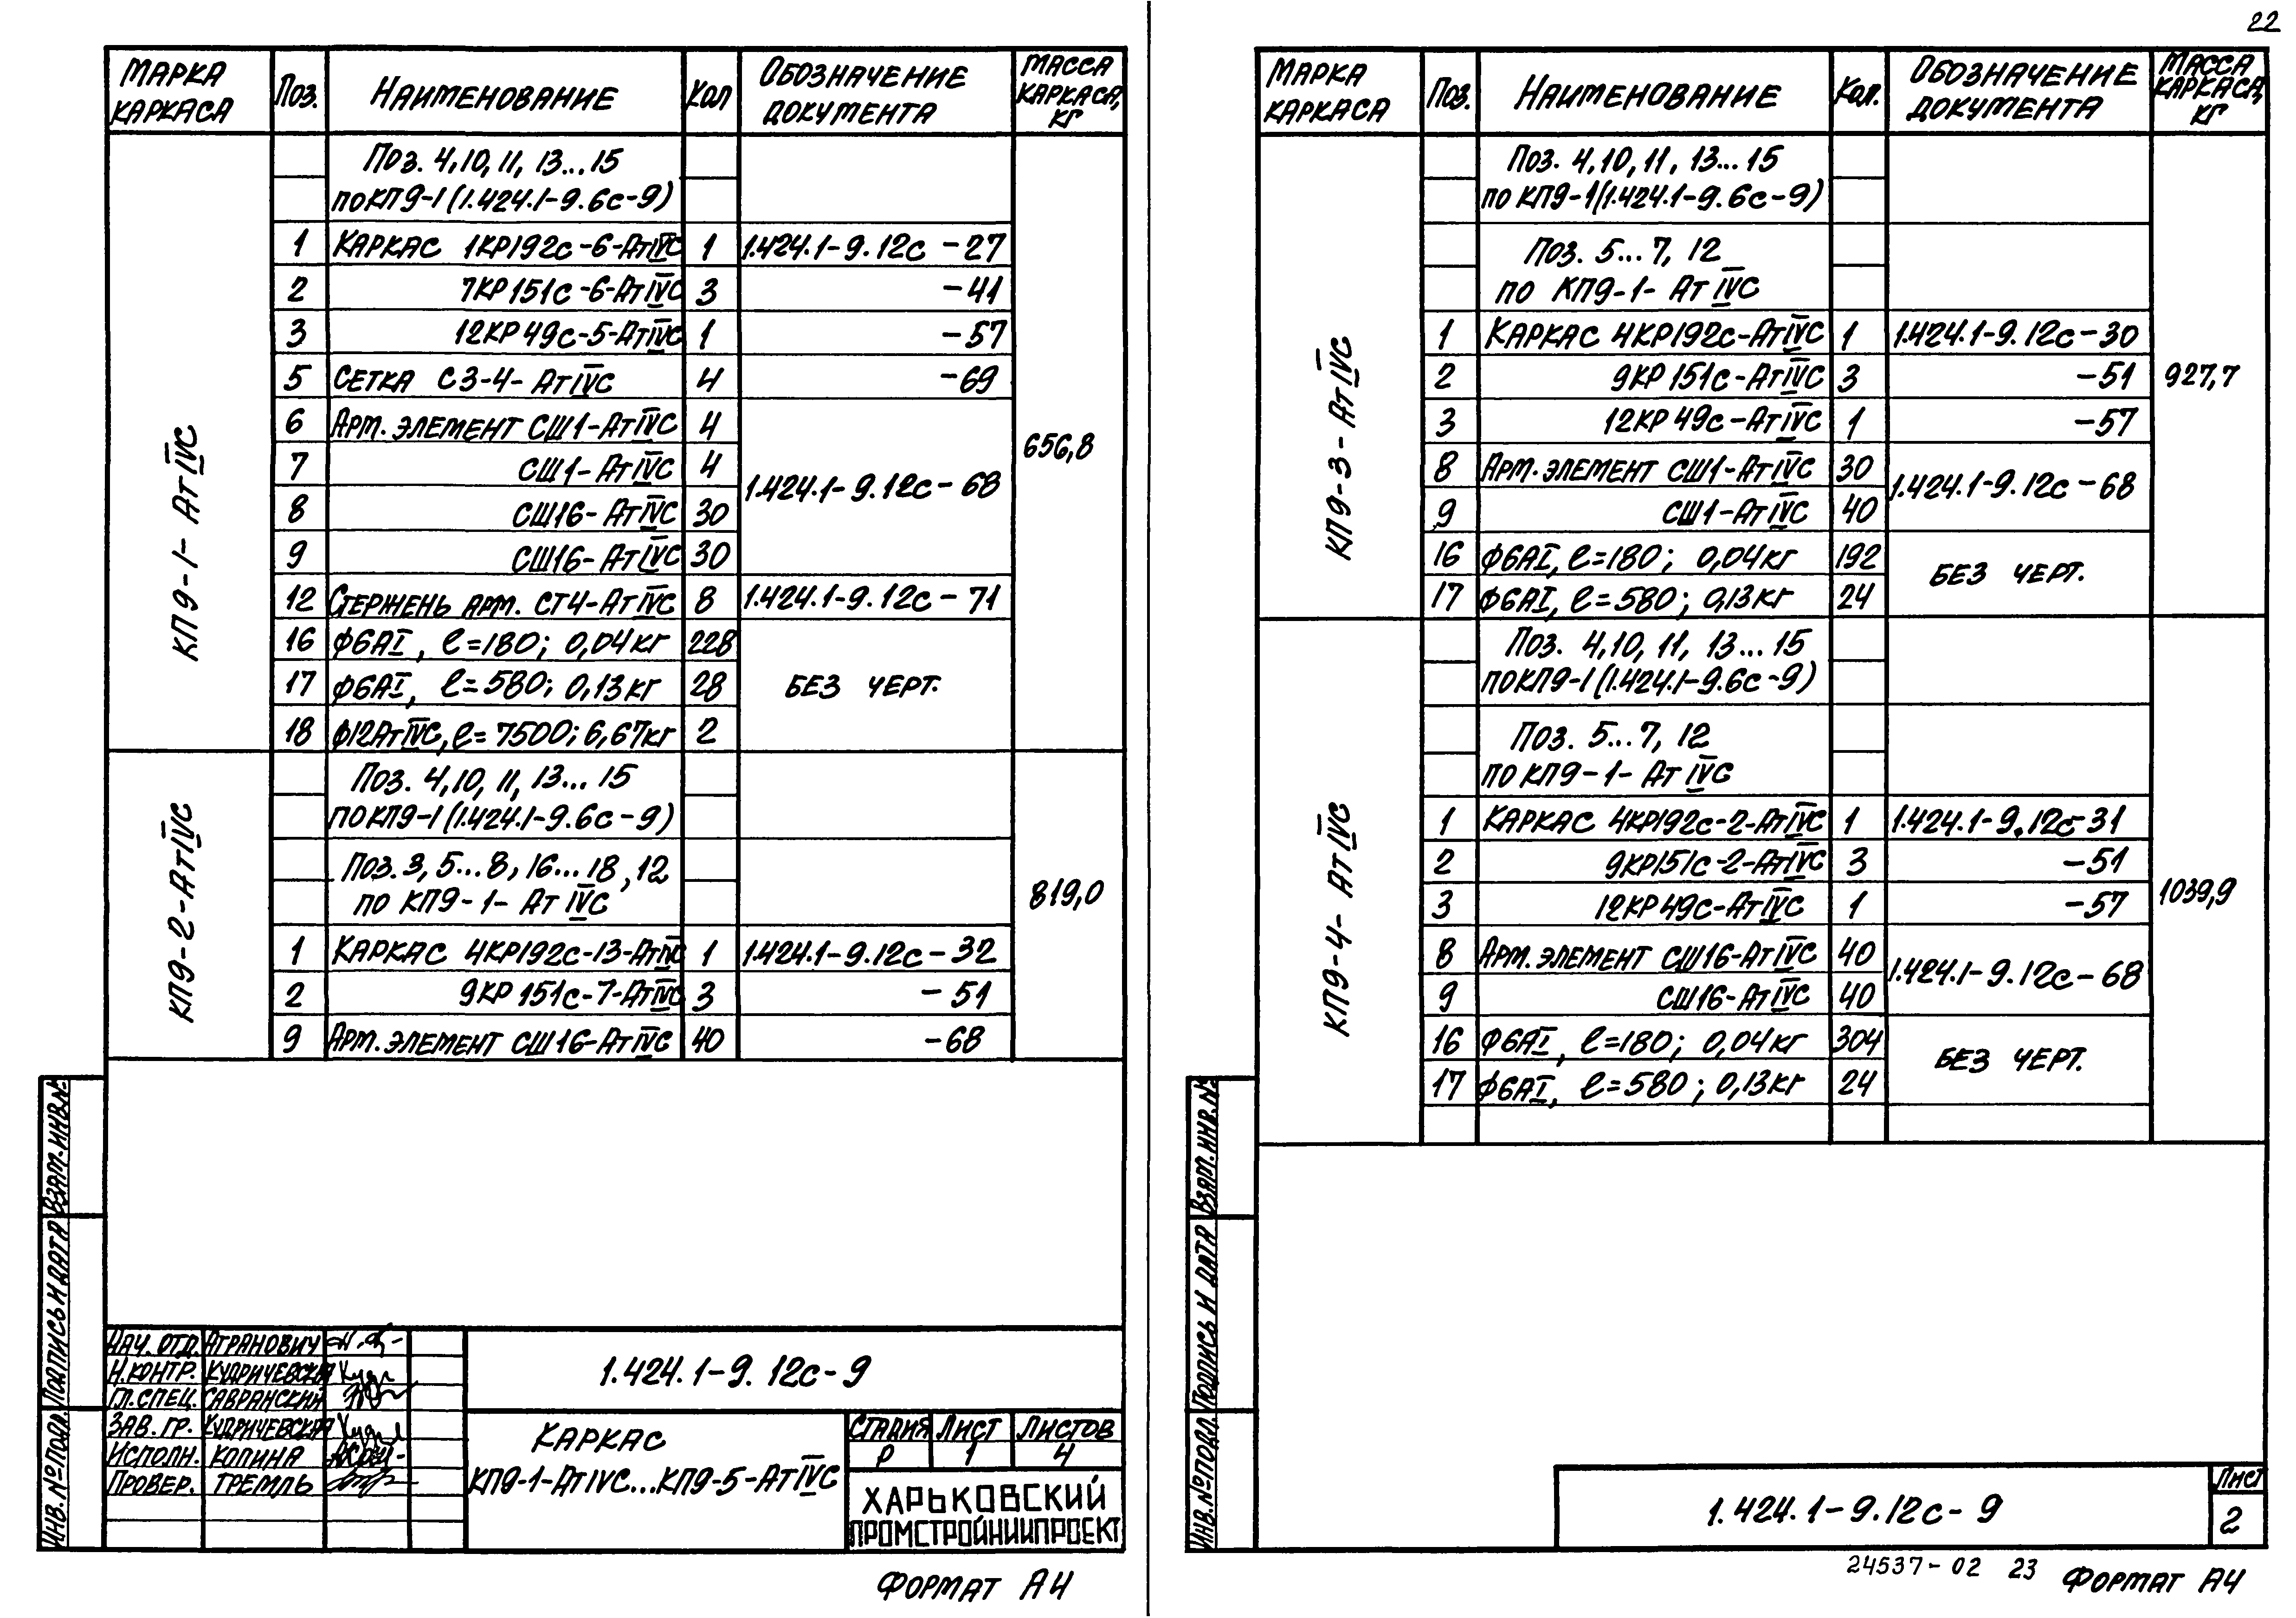 22
МАРКА КАРКАСА Поз. НАИМЕНОВАНИЕ Кол ОБОЗНАЧЕНИЕ ДОКУМЕНТА МАССА КАРКАСА, КГ
КП9-1-АтIVС
Поз. 4,10,11,13...15
по КП9-1(1.424.1-9.6с-9)
1 КАРКАС 1КР192с-6-АтIVС 1 1.424.1-9.12с-27
2 7КР151с-6-АтIVС 3 -41
3 12КР49с-5-АтIVС 1 -57
5 СЕТКА С3-4-АтIVС 4 -69
6 АРМ. ЭЛЕМЕНТ СШ1-АтIVС 4
656,8
7 СШ1-АтIVС 4
1.424.1-9.12с-68
8 СШ16-АтIVС 30
9 СШ16-АтIVС 30
12 СТЕРЖЕНЬ АРМ. СТ4-АтIVС 8 1.424.1-9.12с-71
16 ф6АI, ℓ=180; 0,04кг 228
17 ф6АI, ℓ=580; 0,13кг 28 БЕЗ ЧЕРТ.
18 ф12АтIVС, ℓ=7500; 6,67кг 2
КП9-2-АтIVС
Поз. 4,10,11,13...15
по КП9-1(1.424.1-9.6с-9)
Поз. 3, 5...8, 16...18, 12
по КП9-1-АтIVС
819,0
1 КАРКАС 4КР192с-13-АтIVС 1 1.424.1-9.12с-32
2 9КР151с-7-АтIVС 3 -51
9 АРМ. ЭЛЕМЕНТ СШ16-АтIVС 40 -68
ВЗАМ. ИНВ.№
ПОДПИСЬ И ДАТА
ИНВ.№ПОДЛ.
НАЧ. ОТД. АГРАНОВИЧ
Н.КОНТР. КУДРИЧЕВСКАЯ
ГЛ.СПЕЦ. САВРАНСКИЙ
ЗАВ. ГР. КУДРИЧЕВСКАЯ
ИСПОЛН. КОПИНА
ПРОВЕР. ТРЕМЛЬ
1.424.1-9.12с-9
КАРКАС
КП9-1-АтIVС...КП9-5-АтIVС
СТАДИЯ ЛИСТ ЛИСТОВ
Р 1 4
ХАРЬКОВСКИЙ
ПРОМСТРОЙНИИПРОЕКТ
ФОРМАТ А4
МАРКА КАРКАСА Поз. НАИМЕНОВАНИЕ Кол. ОБОЗНАЧЕНИЕ ДОКУМЕНТА МАССА КАРКАСА, КГ
КП9-3-АтIVС
Поз. 4,10,11,13...15
по КП9-1(1.424.1-9.6с-9)
Поз. 5...7, 12
по КП9-1-АтIVС
1 КАРКАС 4КР192с-АтIVС 1 1.424.1-9.12с-30
2 9КР151с-АтIVС 3 -51
927,7
3 12КР49с-АтIVС 1 -57
8 АРМ. ЭЛЕМЕНТ СШ1-АтIVС 30
1.424.1-9.12с-68
9 СШ1-АтIVС 40
16 ф6АI, ℓ=180; 0,04кг 192
БЕЗ ЧЕРТ.
17 ф6АI, ℓ=580; 0,13кг 24
КП9-4-АтIVС
Поз. 4,10,11,13...15
по КП9-1(1.424.1-9.6с-9)
Поз. 5...7, 12
по КП9-1-АтIVС
1 КАРКАС 4КР192с-2-АтIVС 1 1.424.1-9.12с-31
2 9КР151с-2-АтIVС 3 -51
1039,9
3 12КР49с-АтIVС 1 -57
8 АРМ. ЭЛЕМЕНТ СШ16-АтIVС 40
1.424.1-9.12с-68
9 СШ16-АтIVС 40
16 ф6АI, ℓ=180; 0,04кг 304
БЕЗ ЧЕРТ.
17 ф6АI, ℓ=580; 0,13кг 24
ВЗАМ. ИНВ.№
ПОДПИСЬ И ДАТА
ИНВ.№ПОДЛ.
1.424.1-9.12с-9
ЛИСТ
2
24537-02 23
ФОРМАТ А4